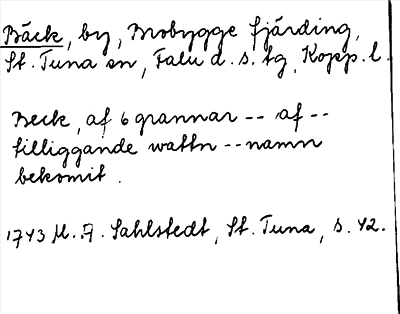 Bäck, by, Brobygge fjärding,
St. Tuna sn, Falu d. s. tg, Kopp. l.
Beck, af 6 grannar -- af --
tilliggande wattn -- namn
bekomit.
1743 M. A. Sahlstedt, St. Tuna, s. 42.